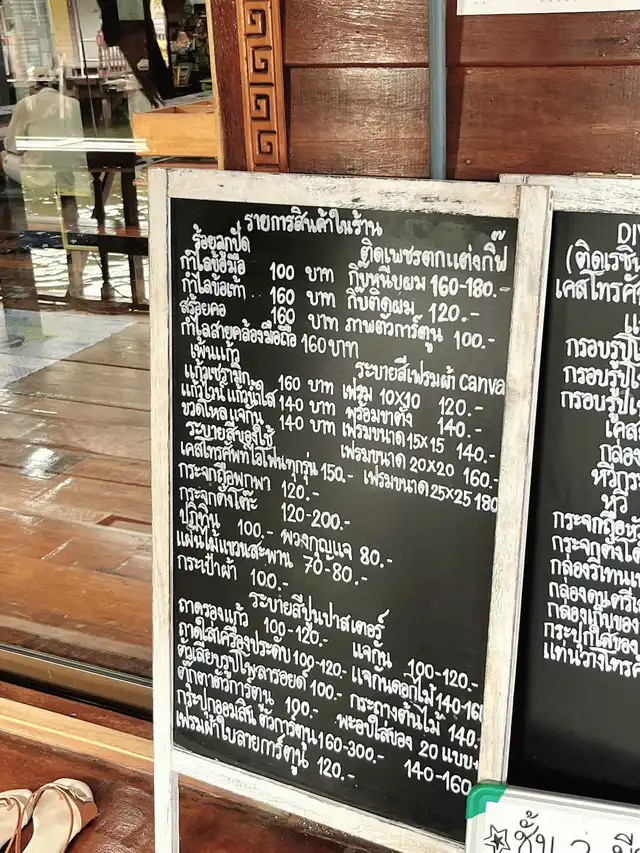 รายการสินค้าในร้าน
ร้อยลูกปัด ติดเพชรตกแต่งกิ๊ฟ
กำไลข้อมือ 100 บาท กิ๊บหนีบผม 160-180.-
กำไลข้อเท้า 160 บาท กิ๊บติดผม 120.-
สร้อยคอ 160 บาท ภาพตัวการ์ตูน 100.-
กำไลสายคล้องมือถือ 160 บาท
เพ้นแก้ว ระบายสีเฟรมผ้า canva
แก้วเซรามิก 160 บาท เฟรม 10x10 120.-
แก้วไวน์ แก้วน้ำใส 140 บาท พร้อมขาตั้ง 140.-
ขวดโหล แจกัน 140 บาท เฟรมขนาด 15x15 140.-
ระบายสีของใช้ เฟรมขนาด 20x20 160.-
เคสโทรศัพท์ไอโฟนทุกรุ่น 150.- เฟรมขนาด 25x25 180
กระจกถือพกพา 120.-
กระจกตั้งโต๊ะ 120-200.-
ปฏิทิน 100.- พวงกุญแจ 80.-
แผ่นไม้แขวนสะพาน 70-80.-
กระเป๋าผ้า 100.-
ระบายสีปูนปาสเตอร์
ถาดรองแก้ว 100-120.- แจกัน 100-120.-
ถาดใส่เครื่องประดับ 100-120.- แจกันดอกไม้ 140-160
ตัวเสียบรูปโพลารอยด์ 100.- กระถางต้นไม้ 140.
ตุ๊กตาตัวการ์ตูน 100.- พะอบใส่ของ 20 แบบ
กระปุกออมสิน ตัวการ์ตูน 160-300.- 140-160
เฟรมผ้าใบลายการ์ตูน 120.-
DI
(ติดเรซิ่น
เคสโทรศั
กรอบรูปไ
กรอบรูปไ
กรอบรูปเ
เคส
กล่อง
หวีกระ
หวี
กระจกถือห
กระจกตั้งโต
กล่องวิเทน
กล่องดนตรี
กล่องเก็บของ
กระปุกใส่ของ
แท่นวางโทรศ
ชั้น 2